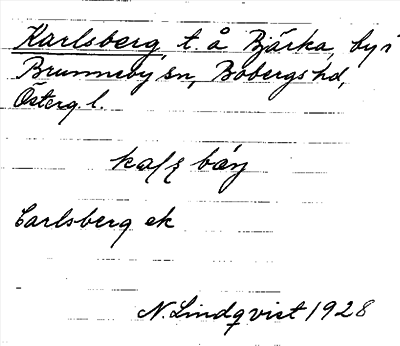 Karlsberg, t. å Bjärka, by i
Brunneby sn, Bobergs hd,
Österg l.
Carlsberg ek
N. Lindqvist 1928